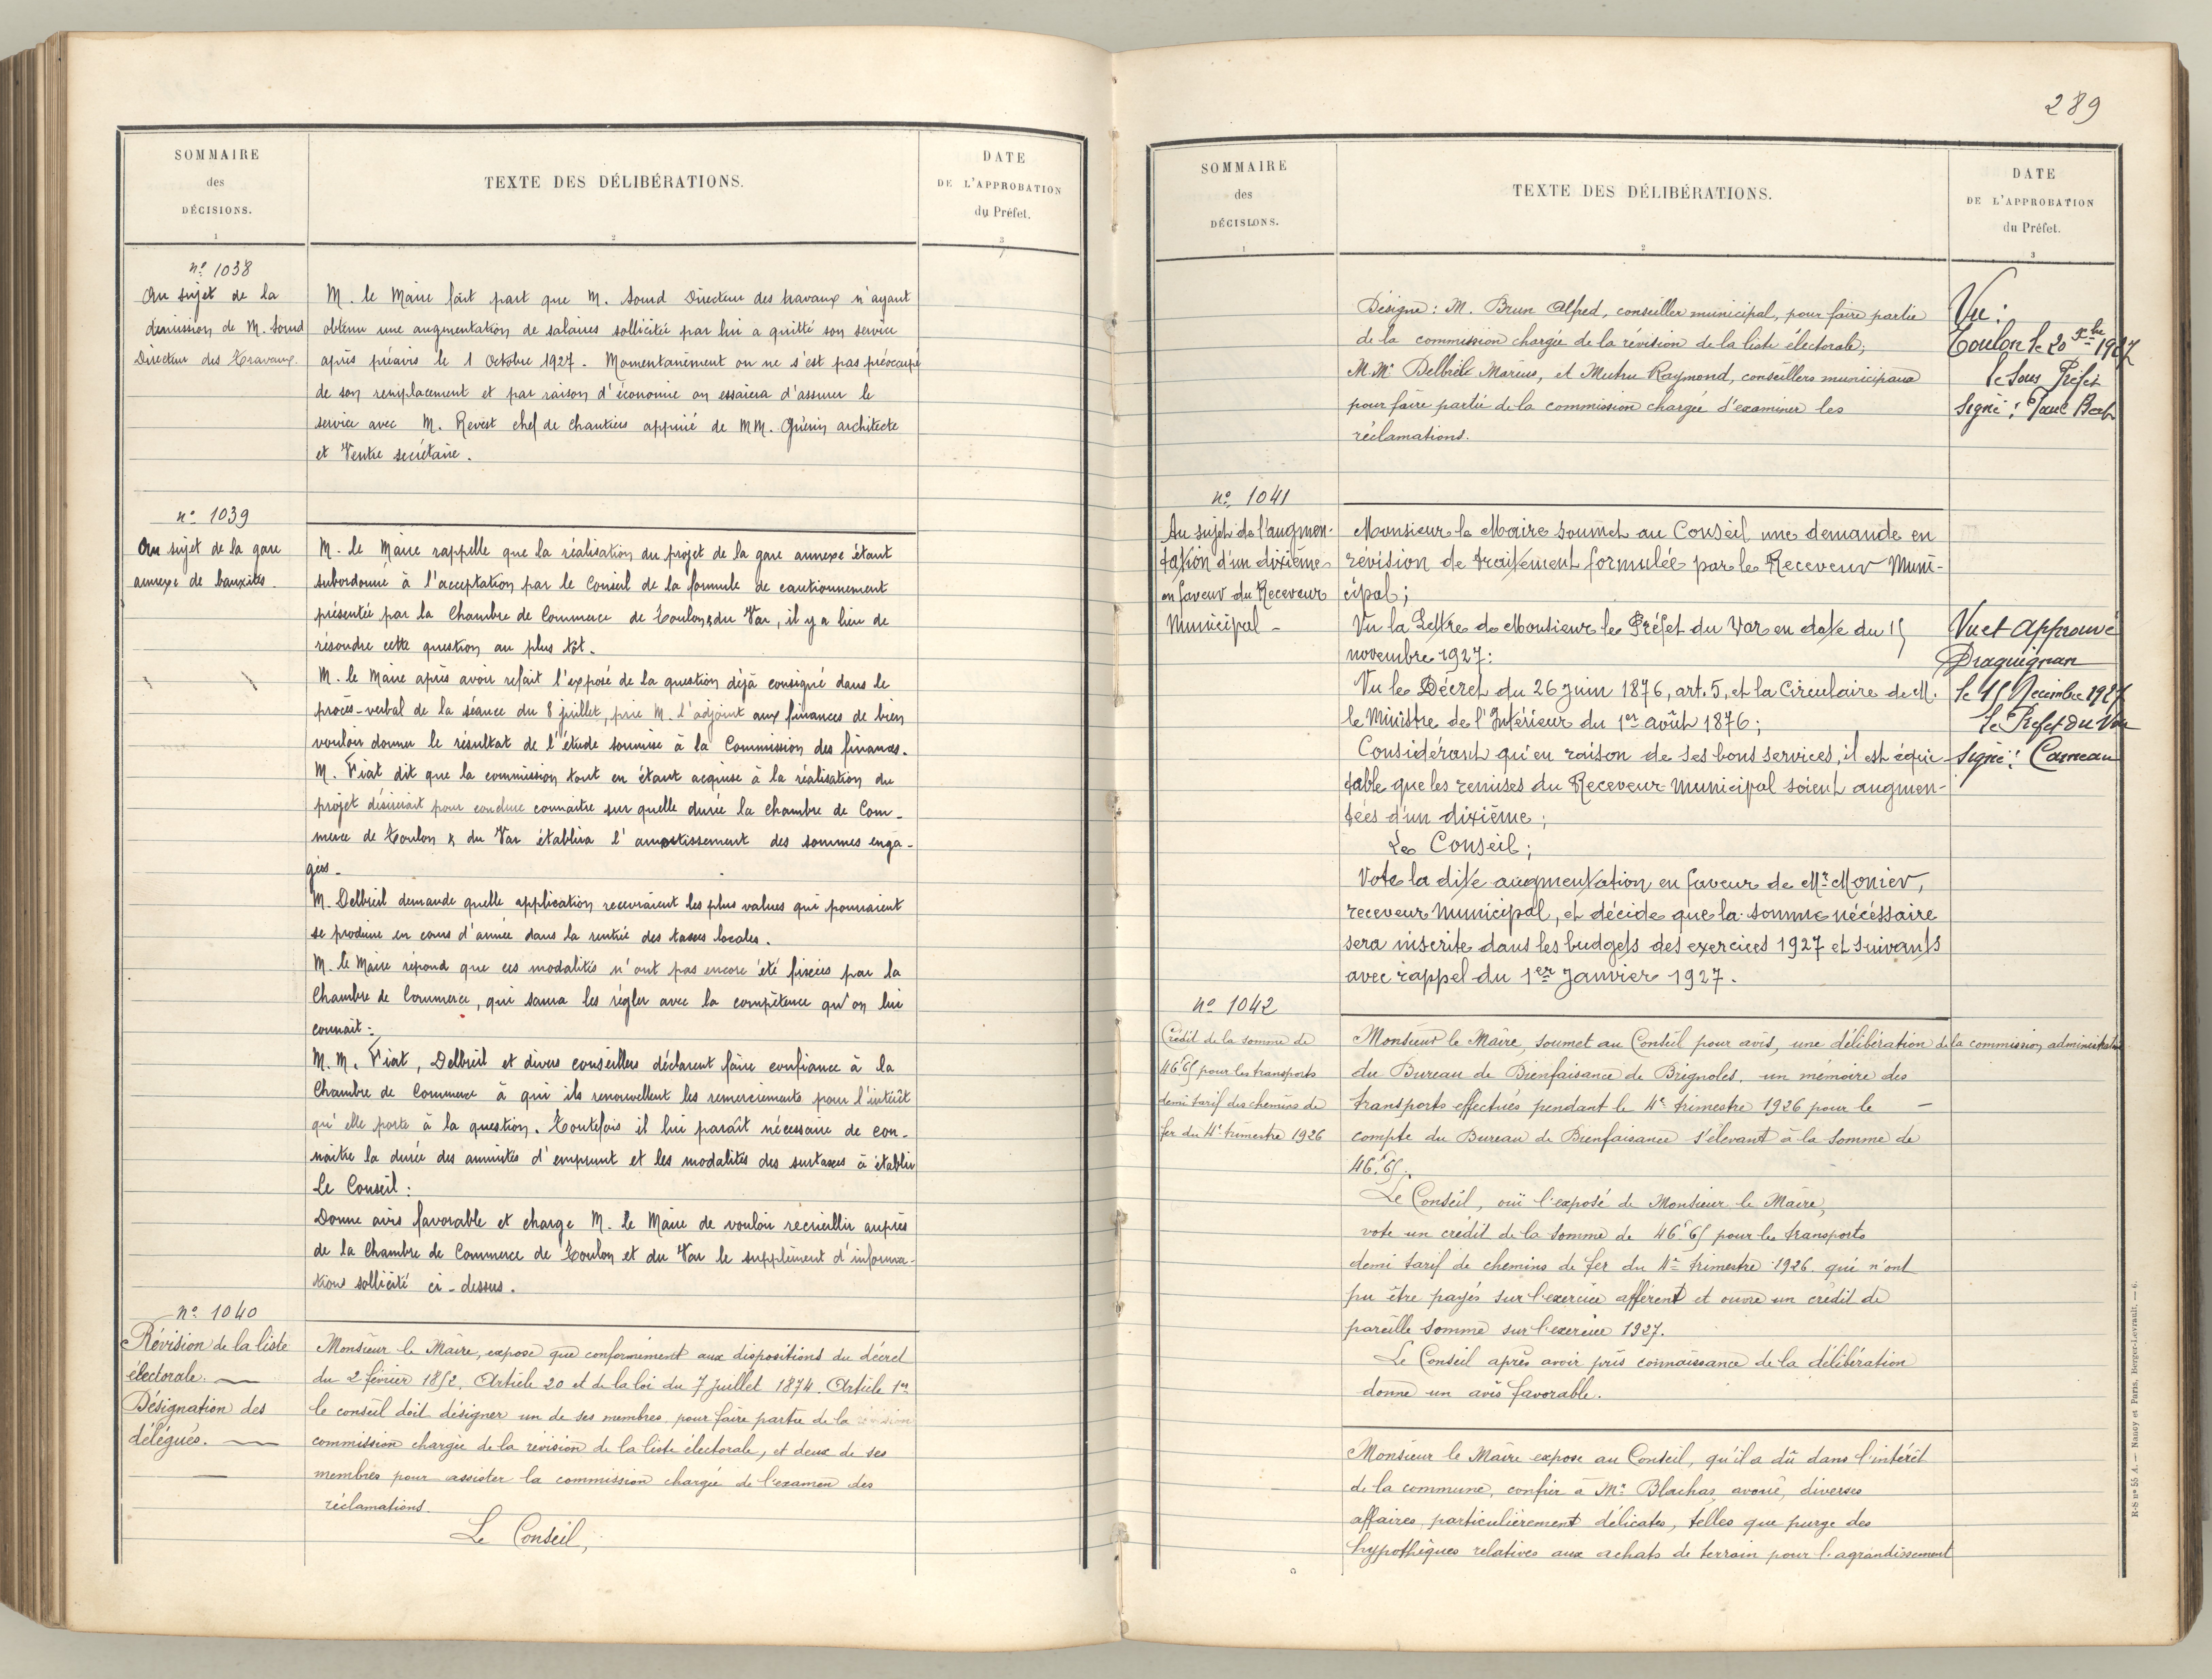 SOMMAIRE
des
DÉCISIONS.
1
TEXTE DES DÉLIBÉRATIONS.
2
DATE
DE L'APPROBATION
du Préfet.
3
nº 1038
Au sujet de la
démission de M. Sourd
Directeur des Travaux.
M. le Maire fait part que M. Sourd Directeur des travaux n'ayant
obtenu une augmentation de salaires sollicitée par lui a quitté son service
après préavis le 1 Octobre 1927. Momentanément on ne s'est pas préoccupé
de son remplacement et par raison d'économie on essaiera d'assurer le
service avec M. Revest chef de chantiers appuié de MM. Guérin architecte
et Ventre secrétaire.
nº 1039
Au sujet de la gare
annexe de bauxites.
M. le Maire rappelle que la réalisation du projet de la gare annexe étant
subordonnée à l'acceptation par le Conseil de la formule de cautionnement
présentée par la Chambre de Commerce de Toulon & du Var, il y a lieu de
résoudre cette question au plus tôt.
M. le Maire après avoir refait l'exposé de la question déjà consigné dans le
procès-verbal de la séance du 8 juillet, prie M. l'adjoint aux finances de bien
vouloir donner le résultat de l'étude soumise à la Commission des finances.
M. Fiat dit que la commission tout en étant acquise à la réalisation du
projet désirerait pour conclure connaitre sur quelle durée la Chambre de Com-
merce de Toulon & du Var établira l'amortissement des sommes enga-
gées.
M. Delbreil demande quelle application recevraient les plus values qui pourraient
se produire en cours d'année dans la rentrée des taxes locales.
M. le Maire répond que ces modalités n'ont pas encore été fixées par la
Chambre de Commerce, qui saura les régler avec la compétence qu'on lui
connait.
M.M. Fiat, Delbreil et divers conseillers déclarent faire confiance à la
Chambre de Commerce à qui ils renouvellent les remerciements pour l'intérêt
qu'elle porte à la question. Toutefois il lui paraît nécessaire de con-
naitre la durée des annuités d'emprunt et les modalités des surtaxes à établir
Le Conseil :
Donne avis favorable et charge M. le Maire de vouloir recueillir auprès
de la Chambre de Commerce de Toulon et du Var le supplément d'informa-
tions sollicité ci-dessus.
nº 1040
Révision de la liste
électorale.
Désignation des
délégués.
Monsieur le Maire, expose que conformément aux dispositions du décret
du 2 février 1852. Article 20 et de la loi du 7 Juillet 1874. Article 1er
le conseil doit désigner un de ses membres pour faire partie de la
commission chargée de la révision de la liste électorale, et deux de ses
membres pour assister la commission chargée de l'examen des
réclamations.
Le Conseil,
289
SOMMAIRE
des
DÉCISIONS.
1
TEXTE DES DÉLIBÉRATIONS.
2
DATE
DE L'APPROBATION
du Préfet.
3
Désigne : M. Brun Alfred, conseiller municipal, pour faire partie
de la commission chargée de la révision de la liste électorale;
M.Mrs Delbreil Marius, et Mutru Raymond, conseillers municipaux
pour faire partie de la commission chargée d'examiner les
réclamations.
Vu :
Toulon le 20 Xbre 1927
le Sous Préfet
Signé : Paul
nº 1041
Au sujet de l'augmen-
tation d'un dixième
en faveur du Receveur
Municipal -
Monsieur le Maire soumet au Conseil une demande en
révision de traitement formulée par le Receveur Muni-
cipal;
Vu la Lettre de Monsieur le Préfet du Var en date du 15
novembre 1927 :
Vu le Décret du 26 Juin 1876, art. 5, et la Circulaire de M.
le Ministre de l'Intérieur du 1er août 1876;
Considérant qu'en raison de ses bons services, il est équi-
table que les remises du Receveur Municipal soient augmen-
tées d'un dixième;
Le Conseil;
Vote la dite augmentation en faveur de Mr Monier,
receveur Municipal, et décide que la somme nécéssaire
sera inscrite dans les budgets des exercices 1927 et suivants
avec rappel du 1er Janvier 1927.
Vu et Approuvé
Draguignan
le 15 Décembre 1927
le Préfet du Var
Signé : Carneau
nº 1042
Crédit de la somme de
46f65 pour les transports
demi tarif des chemins de
fer du 4e trimestre 1926
Monsieur le Maire, soumet au Conseil pour avis, une délibération de la commission administrative
du Bureau de Bienfaisance de Brignoles. un mémoire des
transports effectués pendant le 4e trimestre 1926 pour le -
compte du Bureau de Bienfaisance s'élevant à la somme de
46f.65.
Le Conseil, ouï l'exposé de Monsieur le Maire,
vote un crédit de la somme de 46f65 pour les transports
demi tarif de chemins de fer du 4e trimestre 1926. qui n'ont
pu être payés sur l'exercice afférent et ouvre un crédit de
pareille somme sur l'exercice 1927.
Le Conseil après avoir pris connaissance de la délibération
donne un avis favorable.
Monsieur le Maire expose au Conseil, qu'il a dû dans l'intérêt
de la commune, confier à Me Blachas, avoué, diverses
affaires particulièrement délicates, telles que purge des
hypothèques relatives aux achats de terrain pour l'agrandissement
R-S nº 55 A. — Nancy et Paris, Berger-Levrault. — 6.